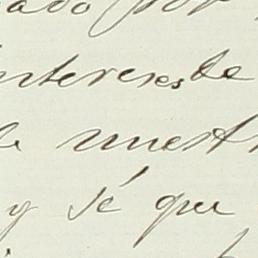 por
intereses de
nuest
y sé que